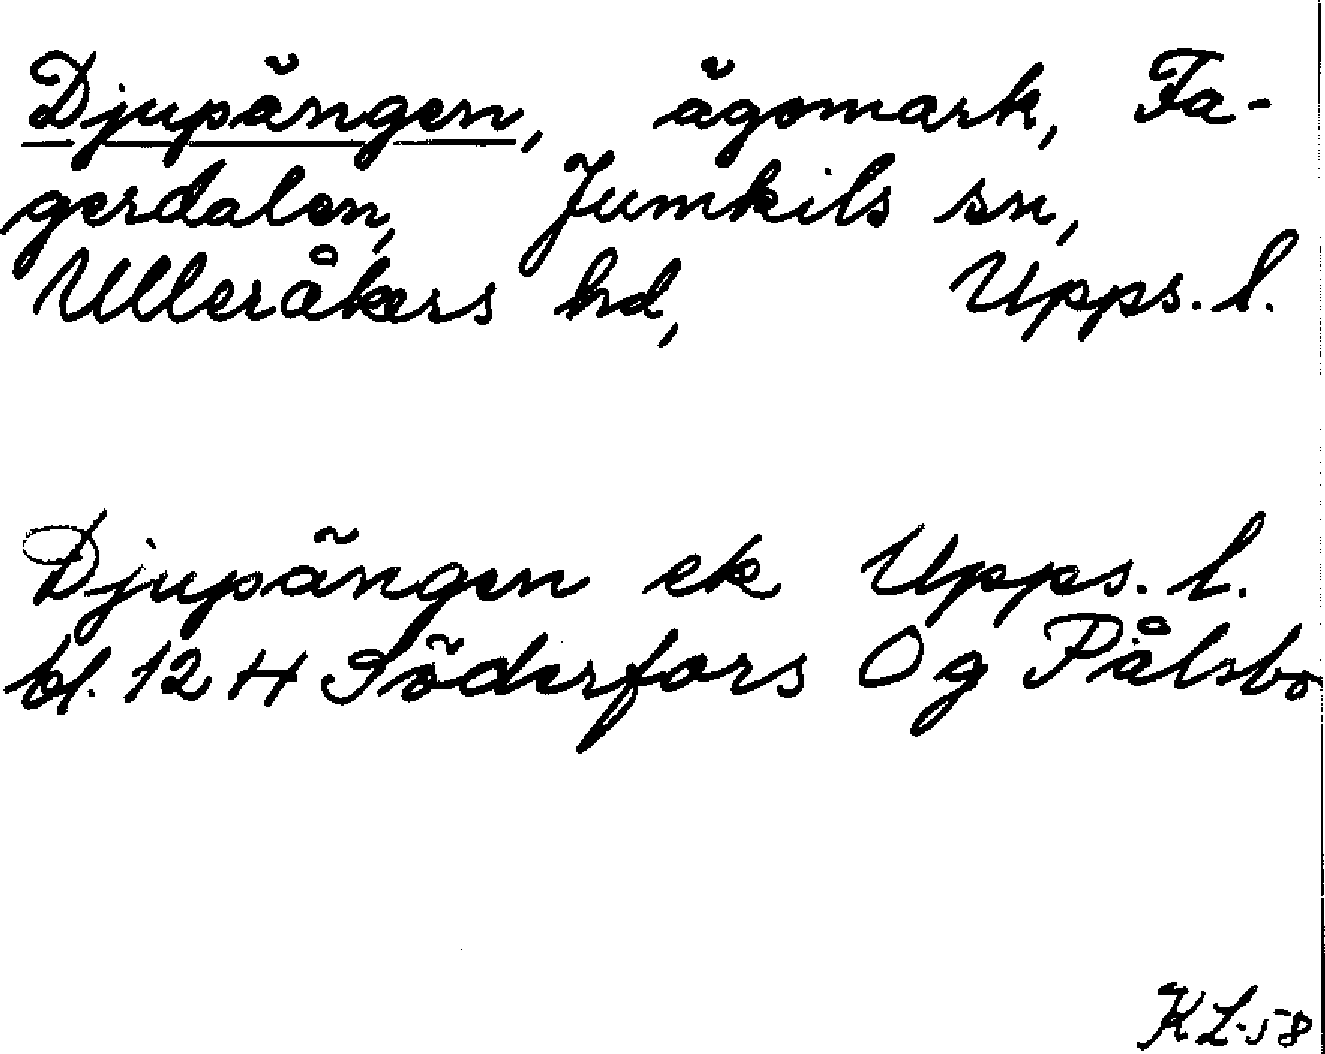 Djupängen, ägomark, Fa-
gerdalen, Jumkils sn,
Ulleråkers hd, Upps. l.
Djupängen ek Upps. l.
bl. 12 H Söderfors O g Pålsbo
KL-58